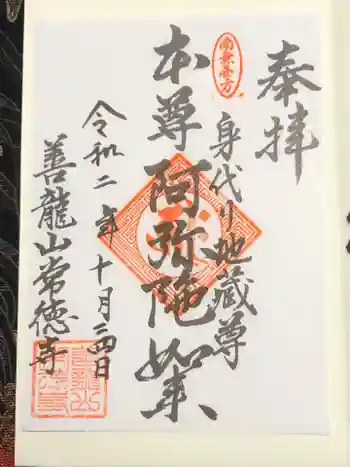 奉拝
南無西方
身代り地蔵尊
本尊阿弥陀如来
令和二年十月二四日
善龍山常徳寺